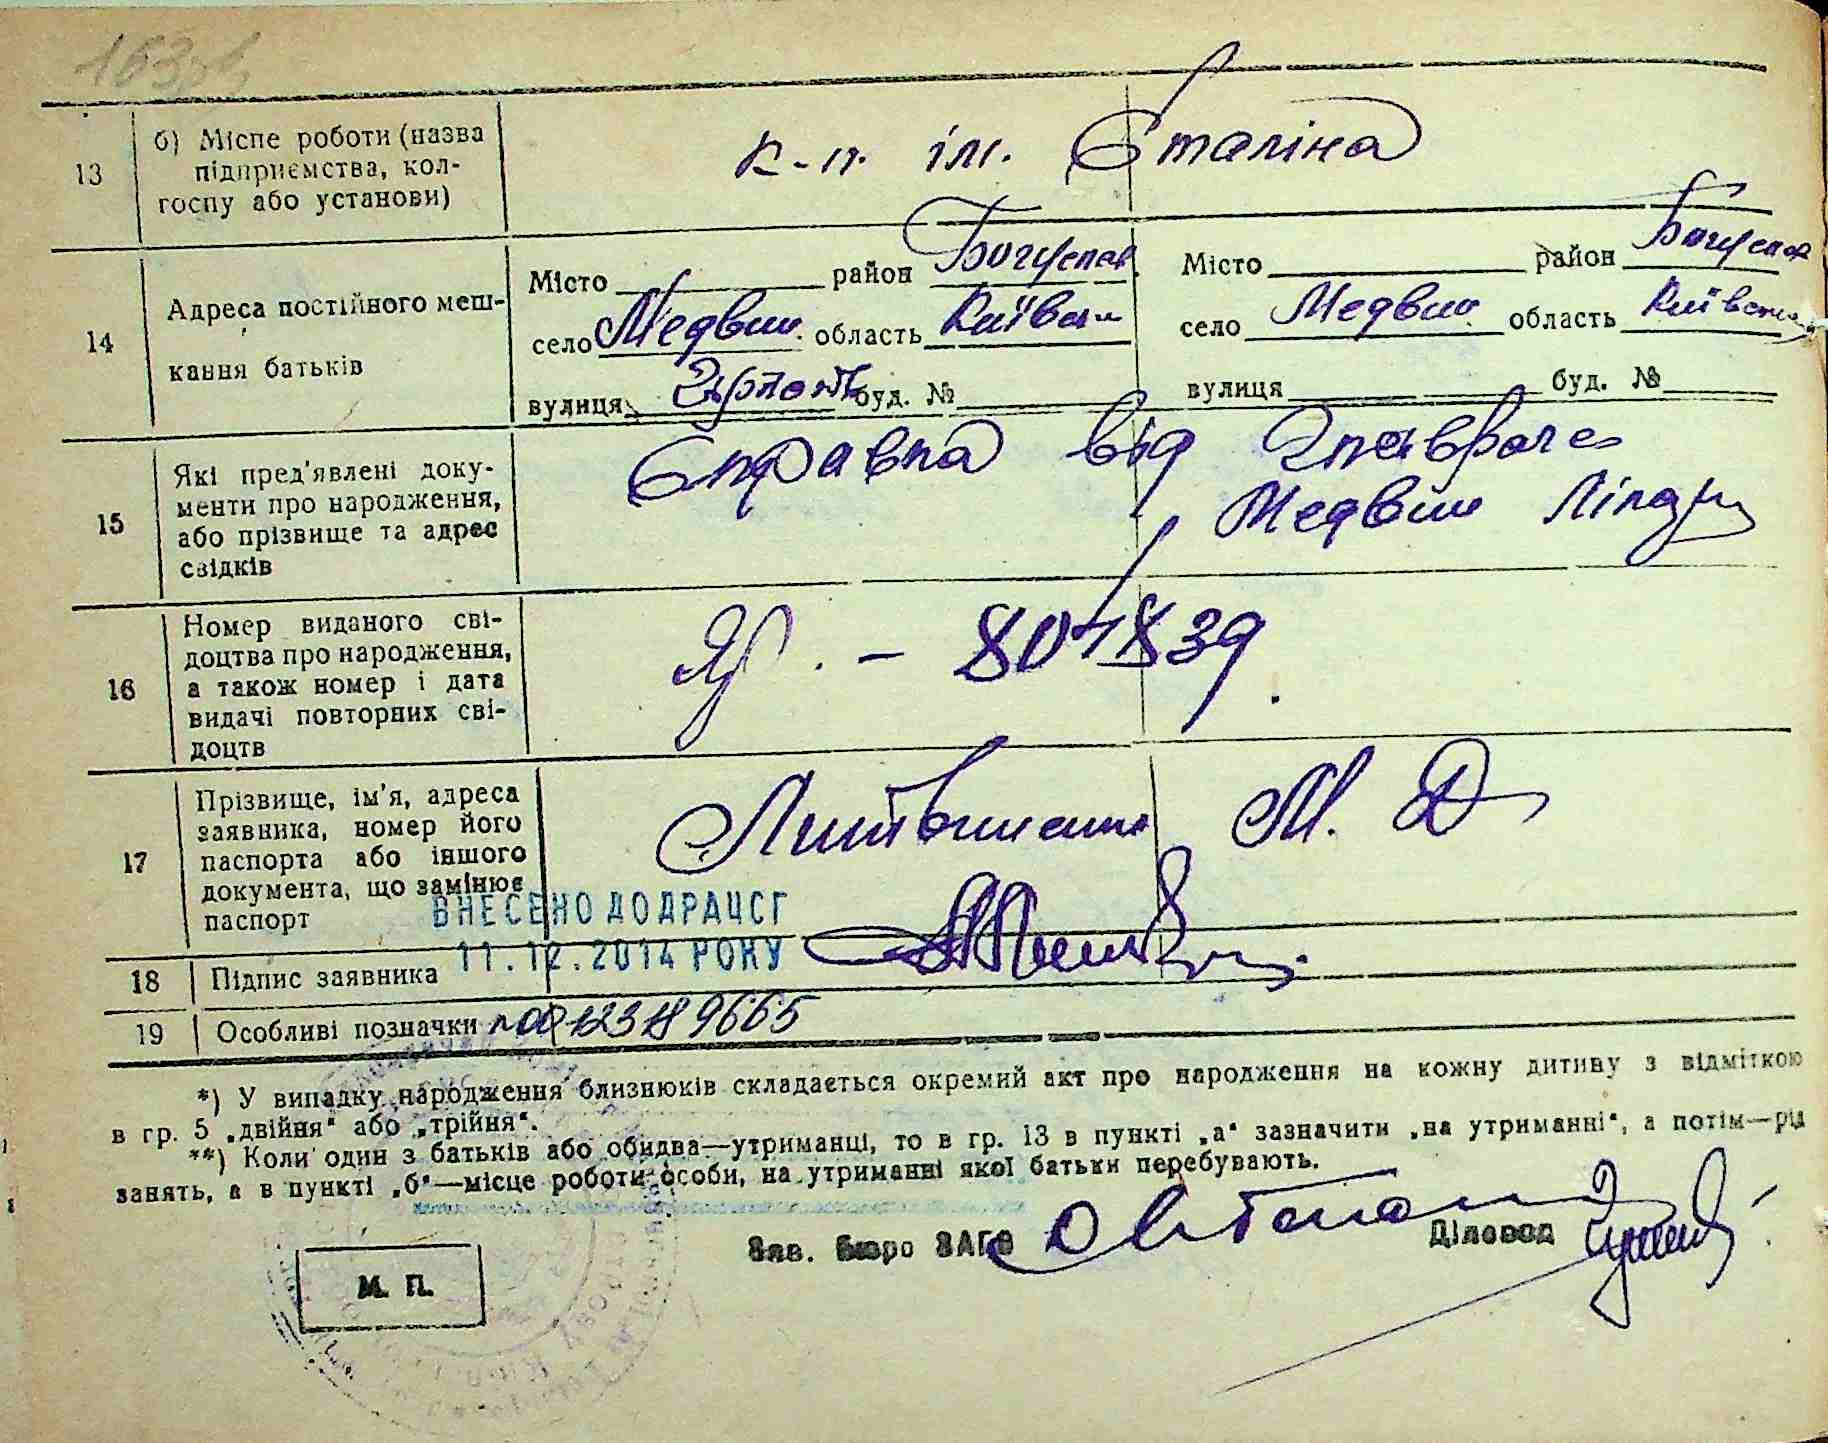 13 б) Місце роботи (назва
підприємства, кол-
госпу або установи)
к-п. ім. Сталіна
14 Адреса постійного меш-
кання батьків
Місто район Богуслав.
село Медвин. область Київськ
вулиця буд. №
Місто район Богуслав
село Медвин область Київськ
вулиця буд. №
15 Які пред'явлені доку-
менти про народження,
або прізвище та адрес
свідків
Справка від Главврача
Медвин
16 Номер виданого сві-
доцтва про народження,
а також номер і дата
видачі повторних сві-
доцтв
17 Прізвище, ім'я, адреса
заявника, номер його
паспорта або іншого
документа, що замінює
паспорт
М. Д
ВНЕСЕНО ДО ДРАЦСГ
11.12.2014 РОКУ
18 Підпис заявника
19 Особливі позначки
*) У випадку народження близнюків складається окремий акт про народження на кожну дитину з відміткою
в гр. 5 „двійня“ або „трійня“.
**) Коли один з батьків або обидва—утриманці, то в гр. 13 в пункті „а“ зазначити „на утриманні“, а потім—рід
занять, а в пункті „б“—місце роботи особи, на утриманні якої батьки перебувають.
Зав. бюро ЗАГС Діловод
М. П.